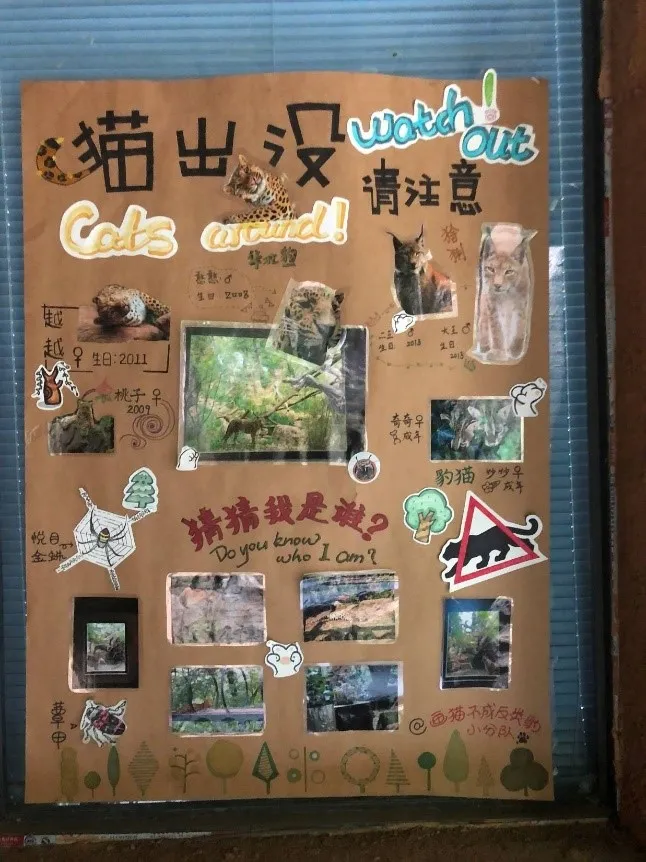 猫出没
Watch out!
请注意
Cats around!
猞猁
憨憨 ♂
生日 2008
越越 ♀ 生日:2011
二王 ♂
生日 2018
大王 ♂
生日 2018
桃子 ♀
2009
奇奇 ♀
成年
豹猫
妙妙 ♀
成年
猜猜我是谁?
Do you know
who I am?
悦目
金蛛
蕈甲
@画猫不成反类豹
小分队